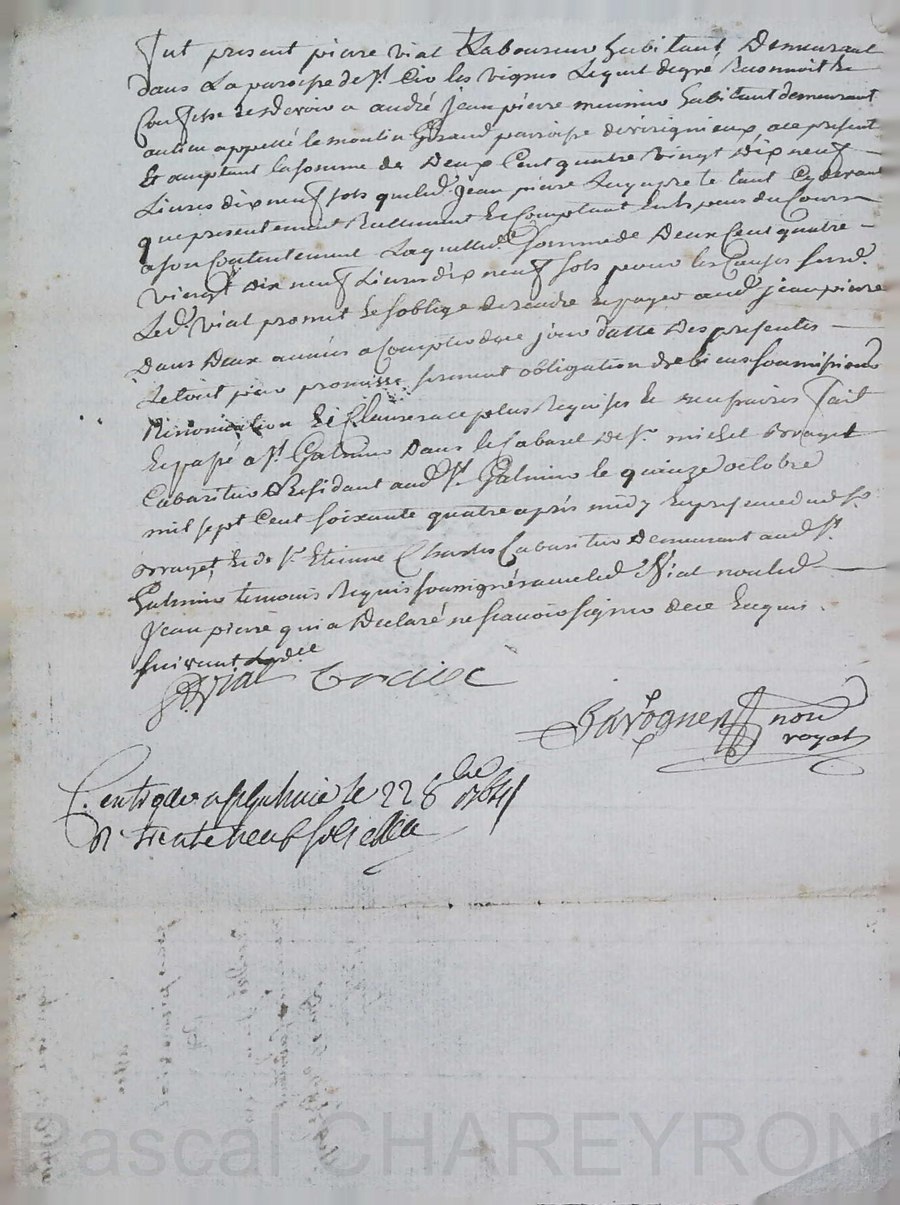 fut present pierre vial Laboureur habitant Demeurant
dans La paroisse de st. Cir les vignes Lequel de gré Reconnoit &
Confesse Devoir a andré jean pierre meusnier habitant demeurant
au lieu appellé le moulin Giraud parroisse de virignieux, ace present
Et acceptant la somme de Deux Cent quatre vingt Dix neuf
Livres dix neuf sols que led. jean pierre Luy a preté tant Cydevant
que presentement Reellement & Comptant En Especes du Cours
a son Contentement Laquelle de. somme de Deux Cent quatre
vingt dix neuf Livres dix neuf sols pour les Causes susd.
Led. vial promet & soblige de rendre & payer aud. jean pierre
Dans Deux années a Compter de ce jour datte Des presentes
Le tout pour promisse serment obligation de biens soumissions
Renonciation & Clauses a ce plus Requises & necessaires fait
& passé a st. Galmier Dans le Cabaret De sr. michel
Cabaretier & Residant aud. st. Galmier le quinze octobre
mil sept Cent soixante quatre apres midy En presence dud. sr.
& de sr. Etienne Charles Cabaretier Demeurant aud. st.
Galmier temoins Requis soussignés avec led. Vial non led.
jean pierre qui a Declaré ne scavoir signer de ce Enquis
suivant Lord.ce
P Vial
not.
royal
a st galmier le 22 8bre 1764
R trente neuf sols
Pascal CHAREYRON